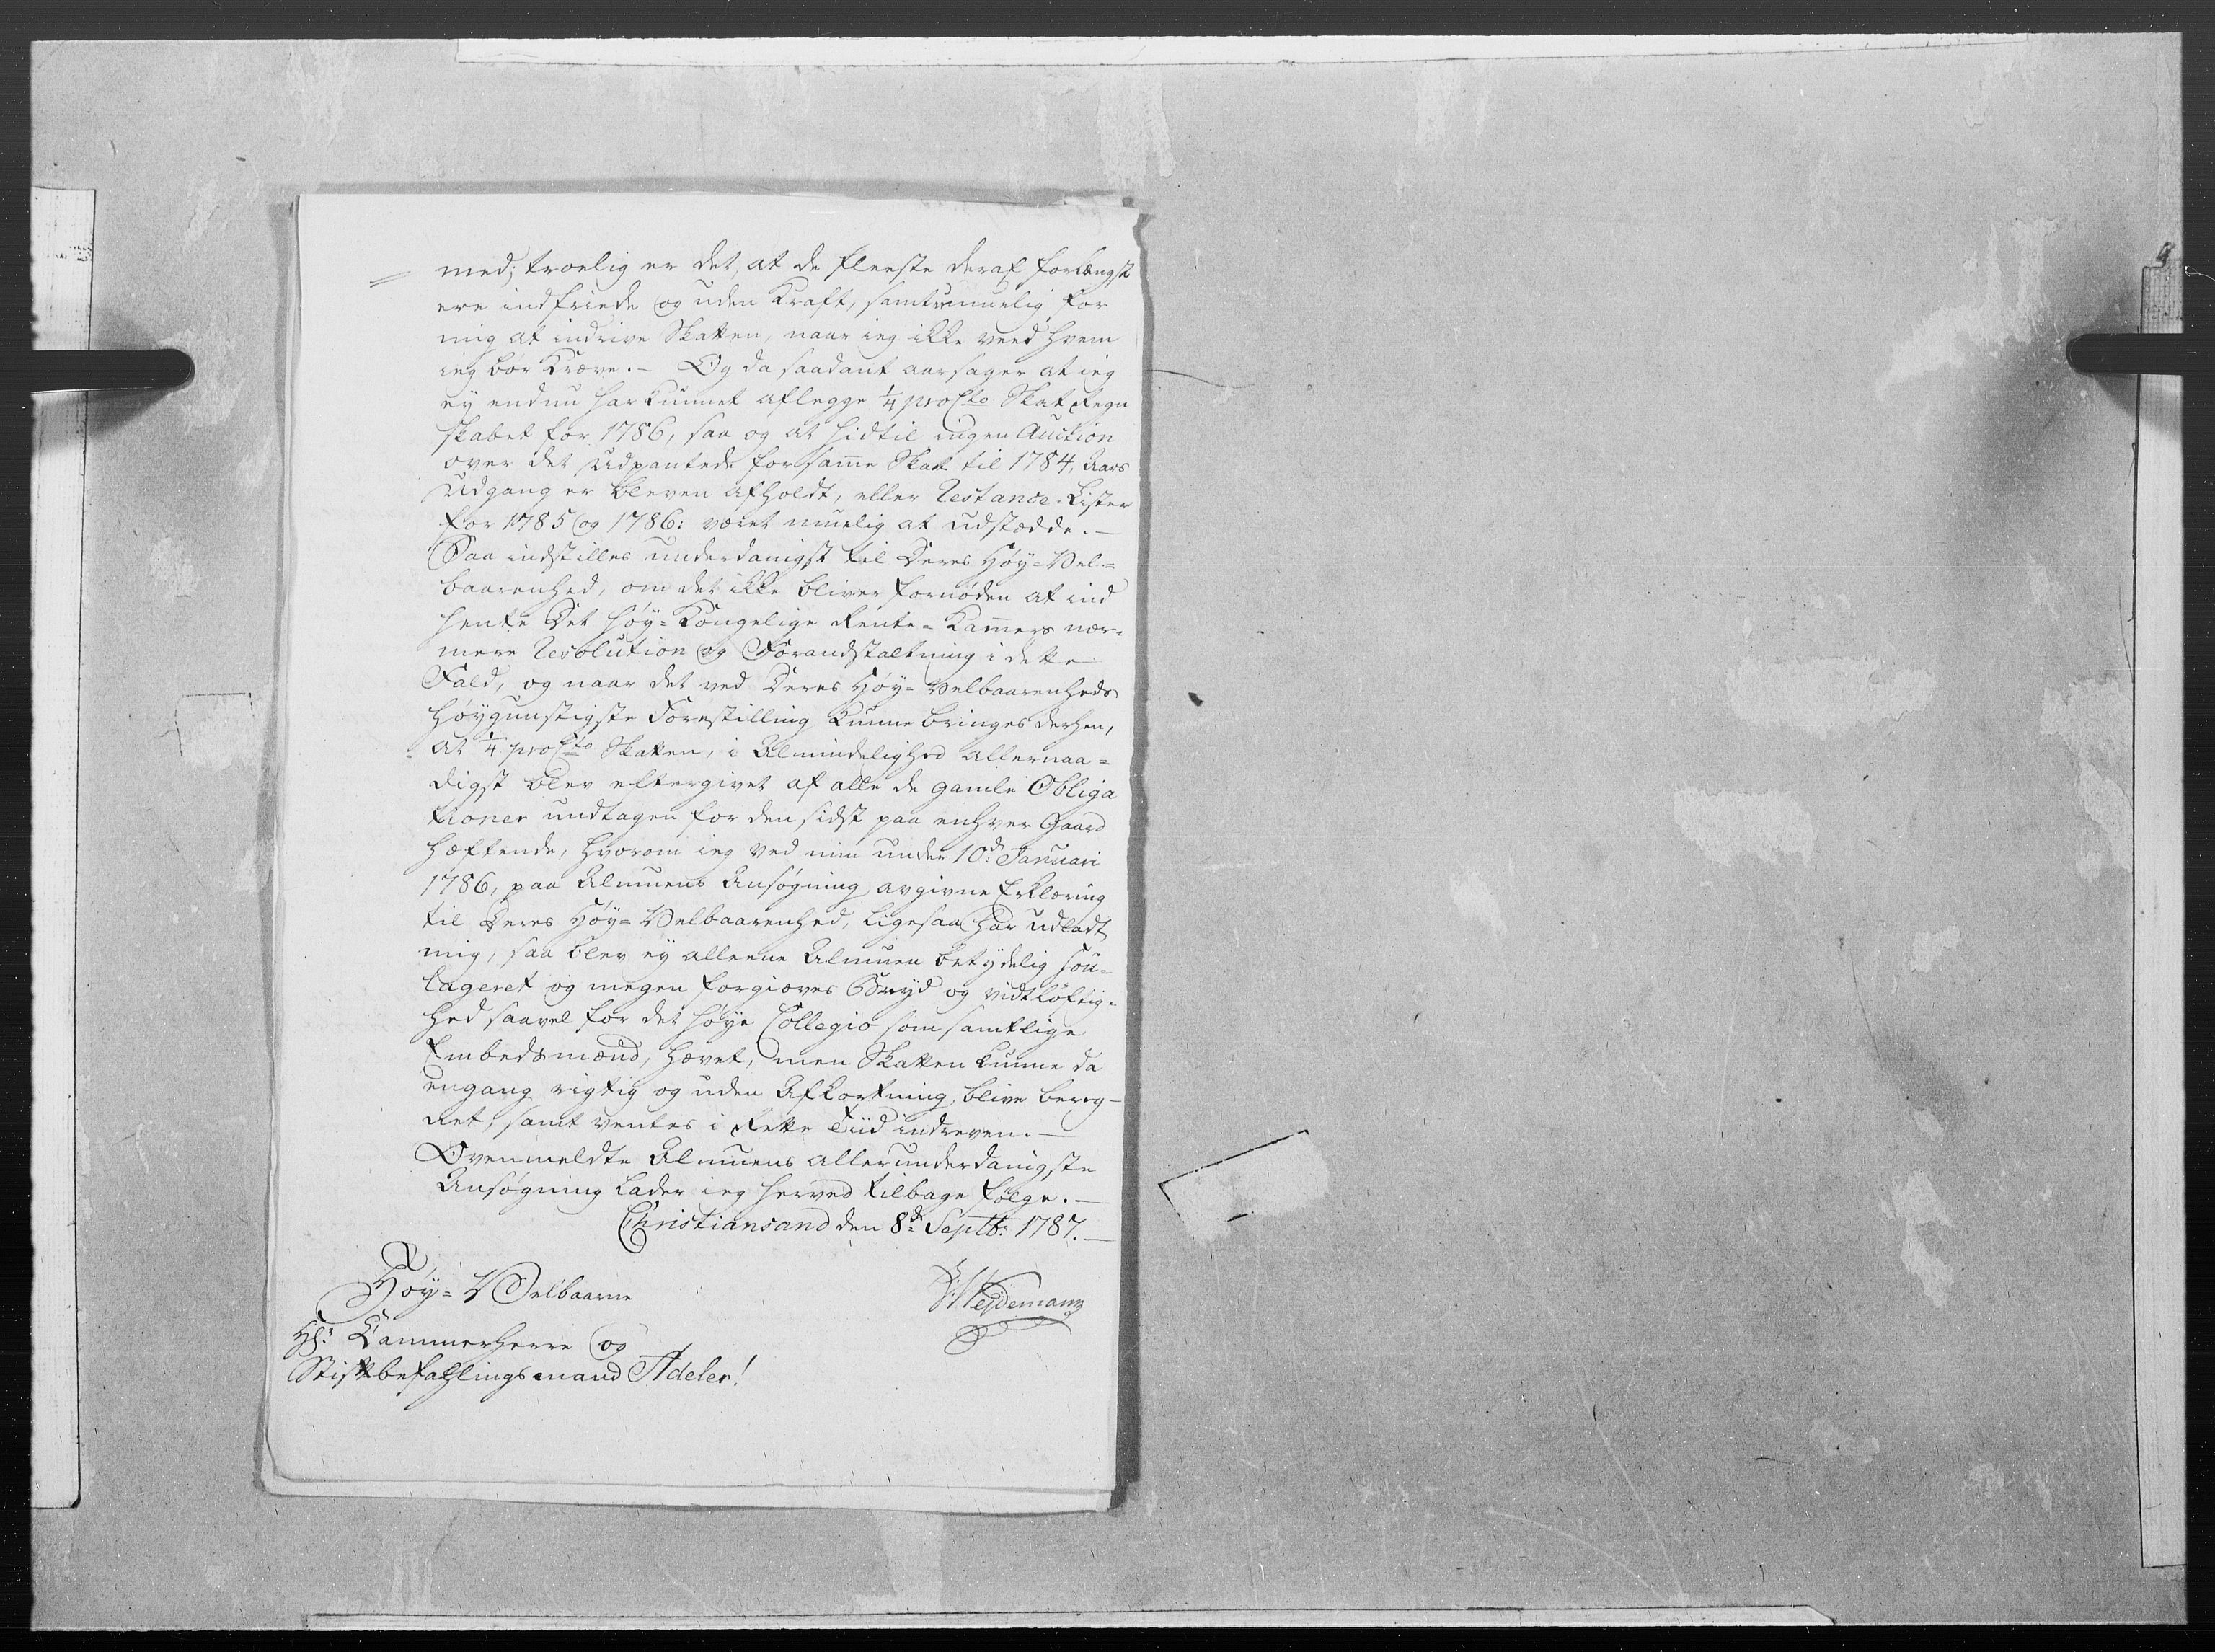 med; troelig er det, at de fleeste deraf forlængst
ere indfriede og uden Kraft, samt umuelig for
mig at indrive Skatten, naar ieg ikke veed hvem
ieg bør Kræve. – Og da saadant aarsager at ieg
ey endnu har kunnet aflegge 1/4 proCto Skat Regn
skabet for 1786, saa og at hidtil ingen Auction
over det udpantede for samme Skat til 1784, Aars
Udgang er bleven afholdt, eller Restance-Lister
for 1785 og 1786: været muelig at udstædde. –
Saa indstilles underdanigst til Deres Høy-Vel-
baarenhed, om det ikke bliver fornøden at ind
hente Det høy-Kongelige Rente-Kammers nær-
mere Resolution og Forandstaltning i dette
Fald, og naar det ved Deres Høy-Velbaarenheds
høygunstigste Forestilling kunne bringes derhen,
at 1/4 proCto Skatten, i Almindelighed allernaa-
digst blev eftergivet af alle de gamle Obliga
tioner undtagen for den sidst paa enhver Gaard
hæftende, hvorom ieg ved min under 10de Januari
1786, paa Almuens Ansøgning avgivne Erklæring
til Deres Høy-Velbaarenhed, ligesaa har udladt
mig, saa blev ey alleene Almuen betydelig sou-
lageret og megen forgiæves Bryd og vidtløftig-
hed saavel for det høye Collegio som samtlige
Embedsmænd, hævet, men Skatten kunne da
engang rigtig og uden Afkortning, blive bereg-
net, samt ventes i Rette Tiid indreven. –
Ovenmeldte Almuens allerunderdanigste
Ansøgning lader ieg herved tilbage følge. –
Christiansand den 8de Septb: 1787. –
Høy-Velbaarne
Weydemann
Hr: Cammerherre og
Stiftbefahlingsmand Adeler!